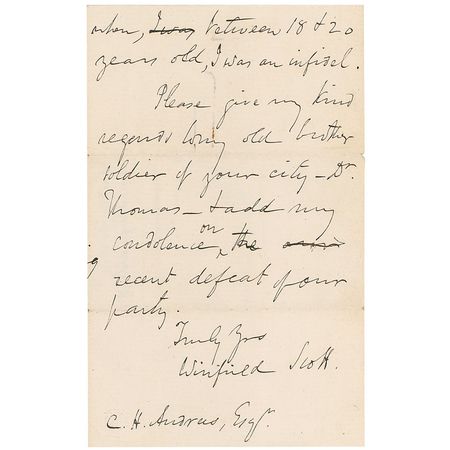 when, I was between 18 & 20
years old, I was an infidel.
Please give my kind
regards to my old brother
soldier of your city — Dr.
Thomas — & add my
condolence on the
recent defeat of our
party.
Truly Yrs
Winfield Scott.
C. H. Andrus, Esqr.